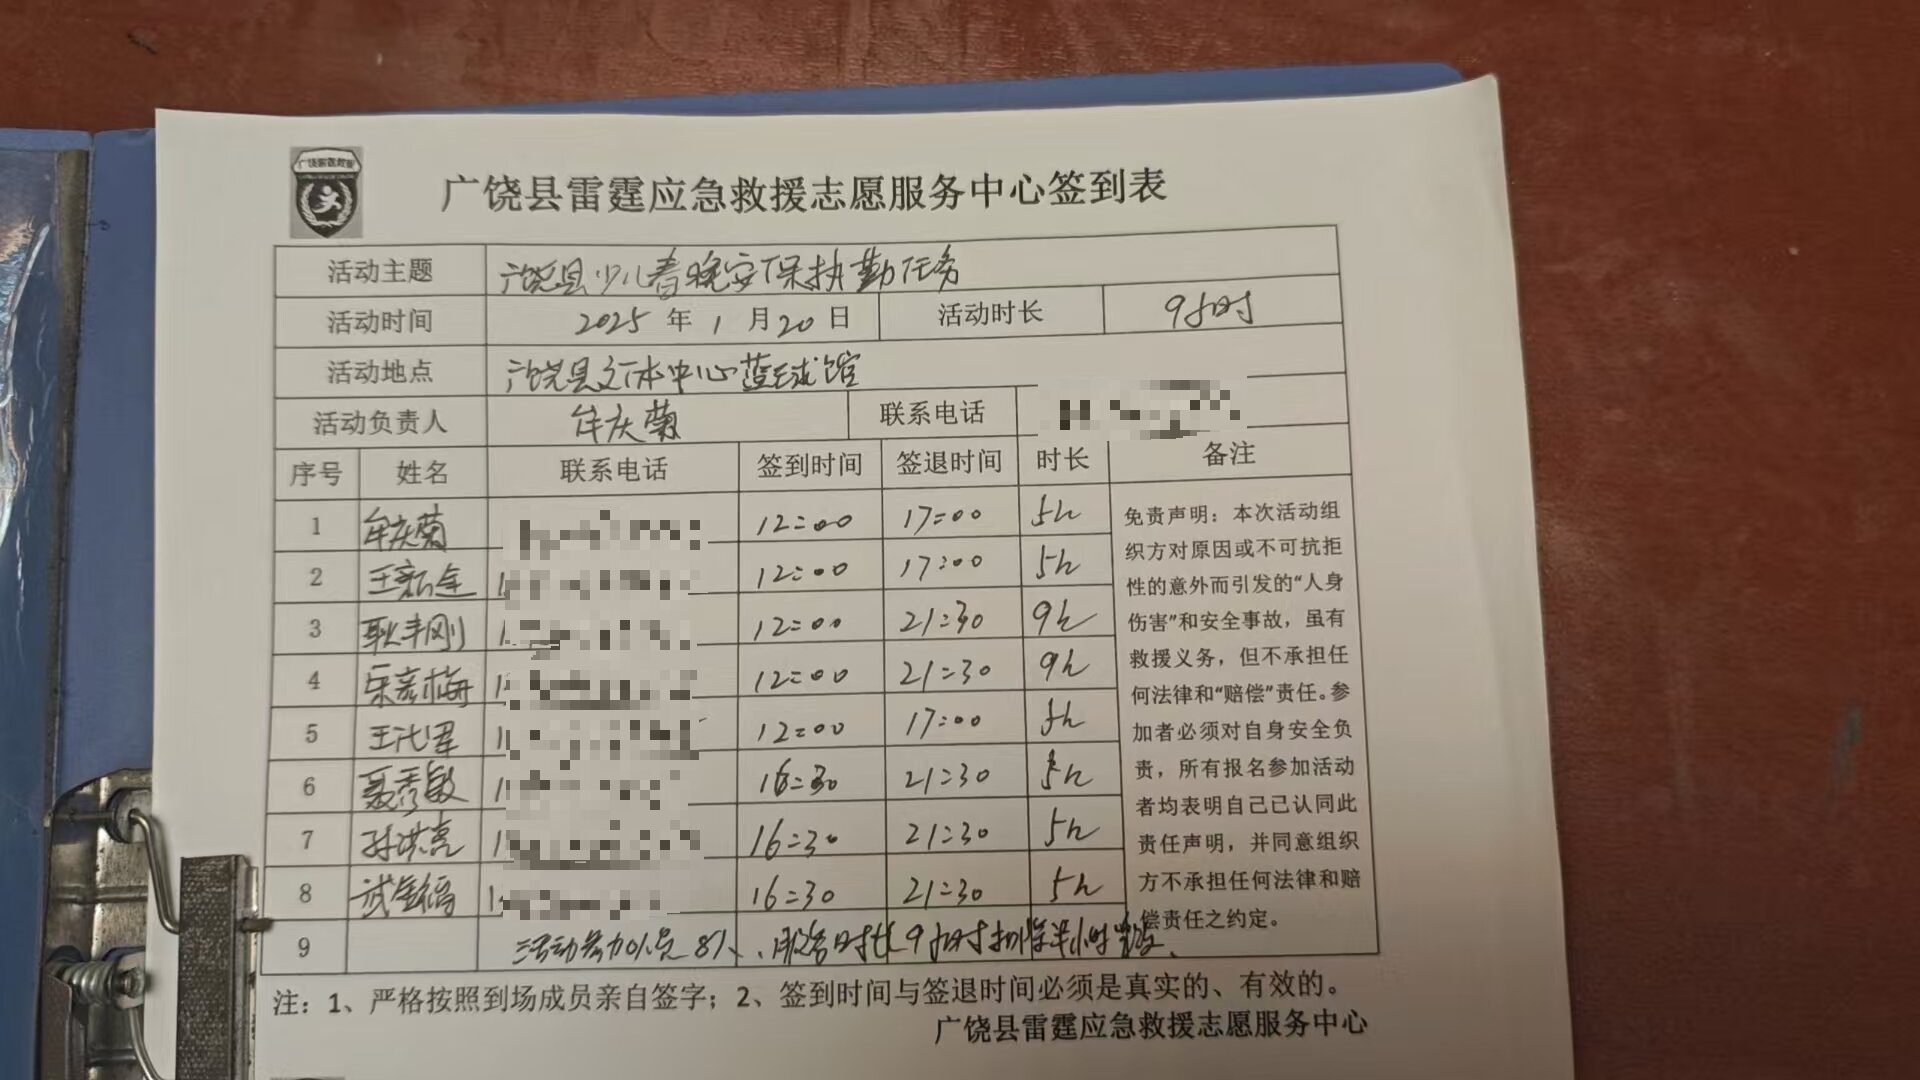 广饶县雷霆应急救援志愿服务中心签到表
活动主题 广饶县少儿春晚安保执勤任务
活动时间 2025 年 1 月 20 日 活动时长 9小时
活动地点 广饶县文体中心篮球馆
活动负责人 牟庆菊 联系电话
序号 姓名 联系电话 签到时间 签退时间 时长 备注
1 牟庆菊 12:00 17:00 5h
2 12:00 17:00 5h
3 耿丰刚 12:00 21:30 9h
4 12:00 21:30 9h
5 12:00 17:00 5h
6 聂秀敏 16:30 21:30 5h
7 孙洪亮 16:30 21:30 5h
8 16:30 21:30 5h
9 活动参加人员8人、服务时长9小时扣除半小时
免责声明：本次活动组
织方对原因或不可抗拒
性的意外而引发的“人身
伤害”和安全事故，虽有
救援义务，但不承担任
何法律和“赔偿”责任。参
加者必须对自身安全负
责，所有报名参加活动
者均表明自己已认同此
责任声明，并同意组织
方不承担任何法律和赔
偿责任之约定。
注：1、严格按照到场成员亲自签字；2、签到时间与签退时间必须是真实的、有效的。
广饶县雷霆应急救援志愿服务中心